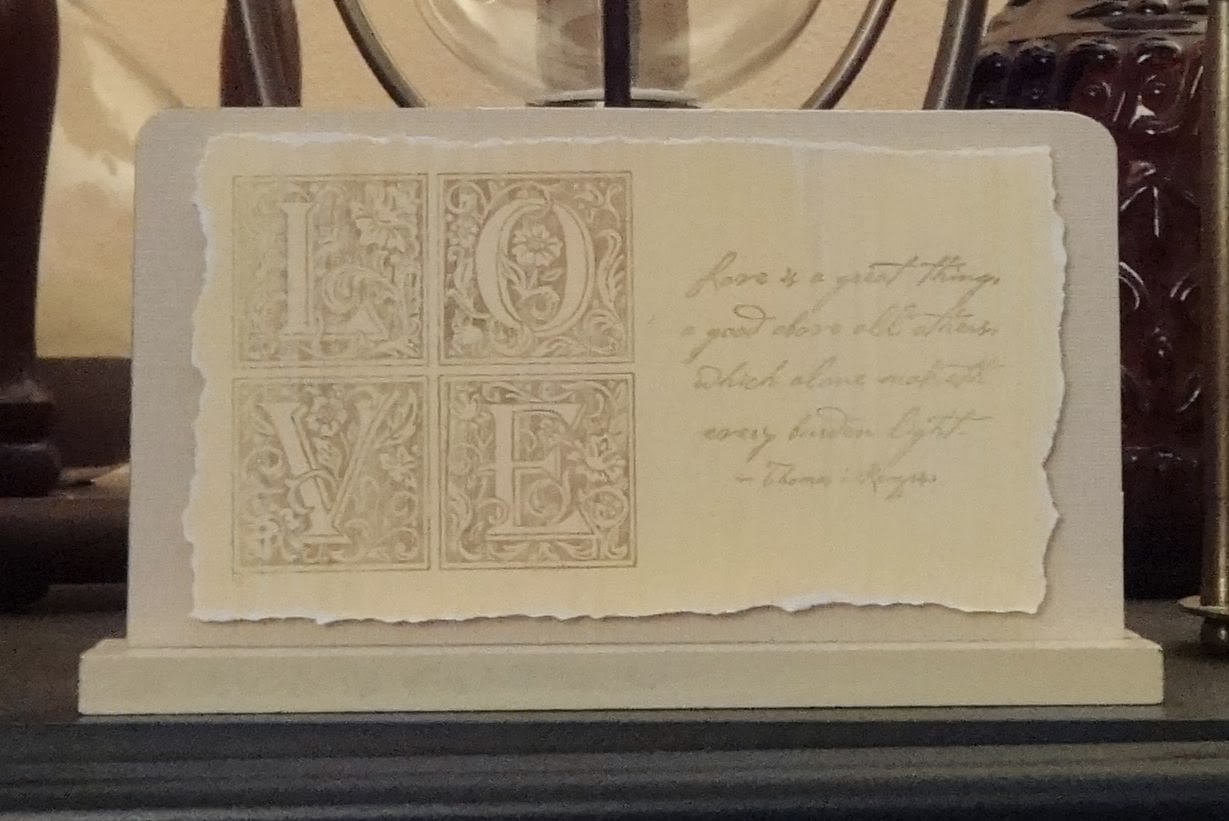 LO
VE
Love is a great thing,
a good above all others,
which alone maketh
every burden light.
~ Thomas à Kempis